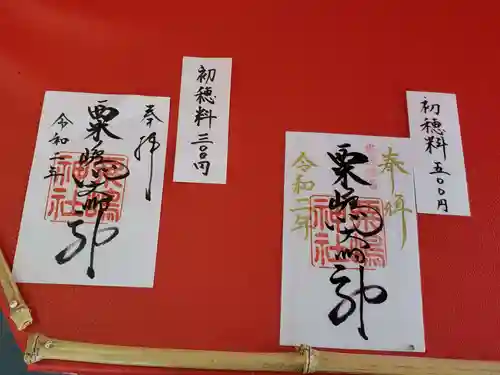 奉拝
粟嶋大明神
令和二年
粟嶋
神社
初穂料 三〇〇円
奉拝
粟嶋大明神
令和二年
粟嶋
神社
初穂料 五〇〇円